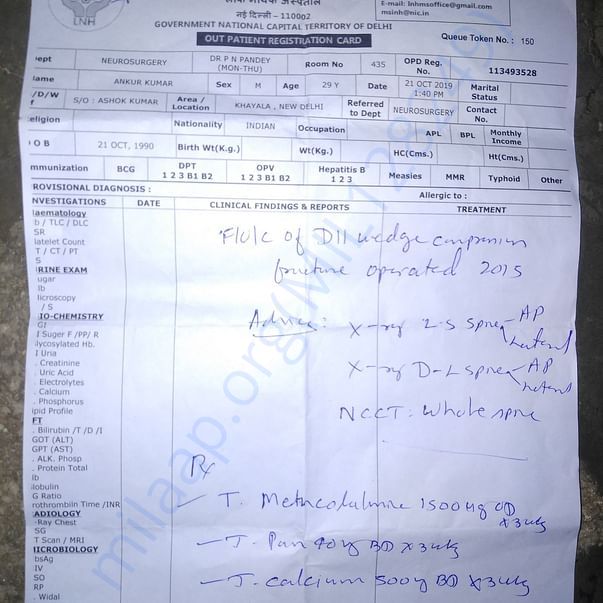 लोक नायक अस्पताल
नई दिल्ली - 110002
LNH
GOVERNMENT NATIONAL CAPITAL TERRITORY OF DELHI
E-mail: lnhmsoffice@gmail.com
msinh@nic.in
OUT PATIENT REGISTRATION CARD
Queue Token No. : 150
ept NEUROSURGERY DR P N PANDEY (MON-THU) Room No 435 OPD Reg. No. 113493528
ame ANKUR KUMAR Sex M Age 29 Y Date 21 OCT 2019 1:40 PM Marital Status
/D/W f S/O : ASHOK KUMAR Area / Location KHAYALA , NEW DELHI Referred to Dept NEUROSURGERY Contact No.
eligion Nationality INDIAN Occupation APL BPL Monthly Income
O B 21 OCT, 1990 Birth Wt(Kg.) Wt(Kg.) HC(Cms.) Ht(Cms.)
mmunization BCG DPT 1 2 3 B1 B2 OPV 1 2 3 B1 B2 Hepatitis B 1 2 3 Measies MMR Typhoid Other
ROVISIONAL DIAGNOSIS : Allergic to :
NVESTIGATIONS DATE CLINICAL FINDINGS & REPORTS TREATMENT
aematology
b / TLC / DLC
SR
latelet Count
T / CT / PT
S
RINE EXAM
ugar
lb
licroscopy
/ S
IO-CHEMISTRY
GI
l Suger F /PP/ R
lycosylated Hb.
l Uria
. Creatinine
. Uric Acid
. Electrolytes
. Calcium
. Phosphorus
ipid Profile
FT
. Bilirubin /T /D /I
GOT (ALT)
GPT (AST)
. ALK. Phosp
. Protein Total
lb
lobulin
G Ratio
rothrombiln Time /INR
ADIOLOGY
-Ray Chest
SG
T Scan / MRI
IICROBIOLOGY
bsAg
IV
SO
RP
. Widal
F/U/C of D11 wedge compression
fracture operated 2015
Advice: X-ray L-S Spine AP
Lateral
X-ray D-L Spine AP
Lateral
NCCT: Whole spine
Rx
T. Methcobalmine 1500 mg OD
x 3 wks
T. Pan 40 mg BD x 3 wks
T. Calcium 500 mg BD x 3 wks